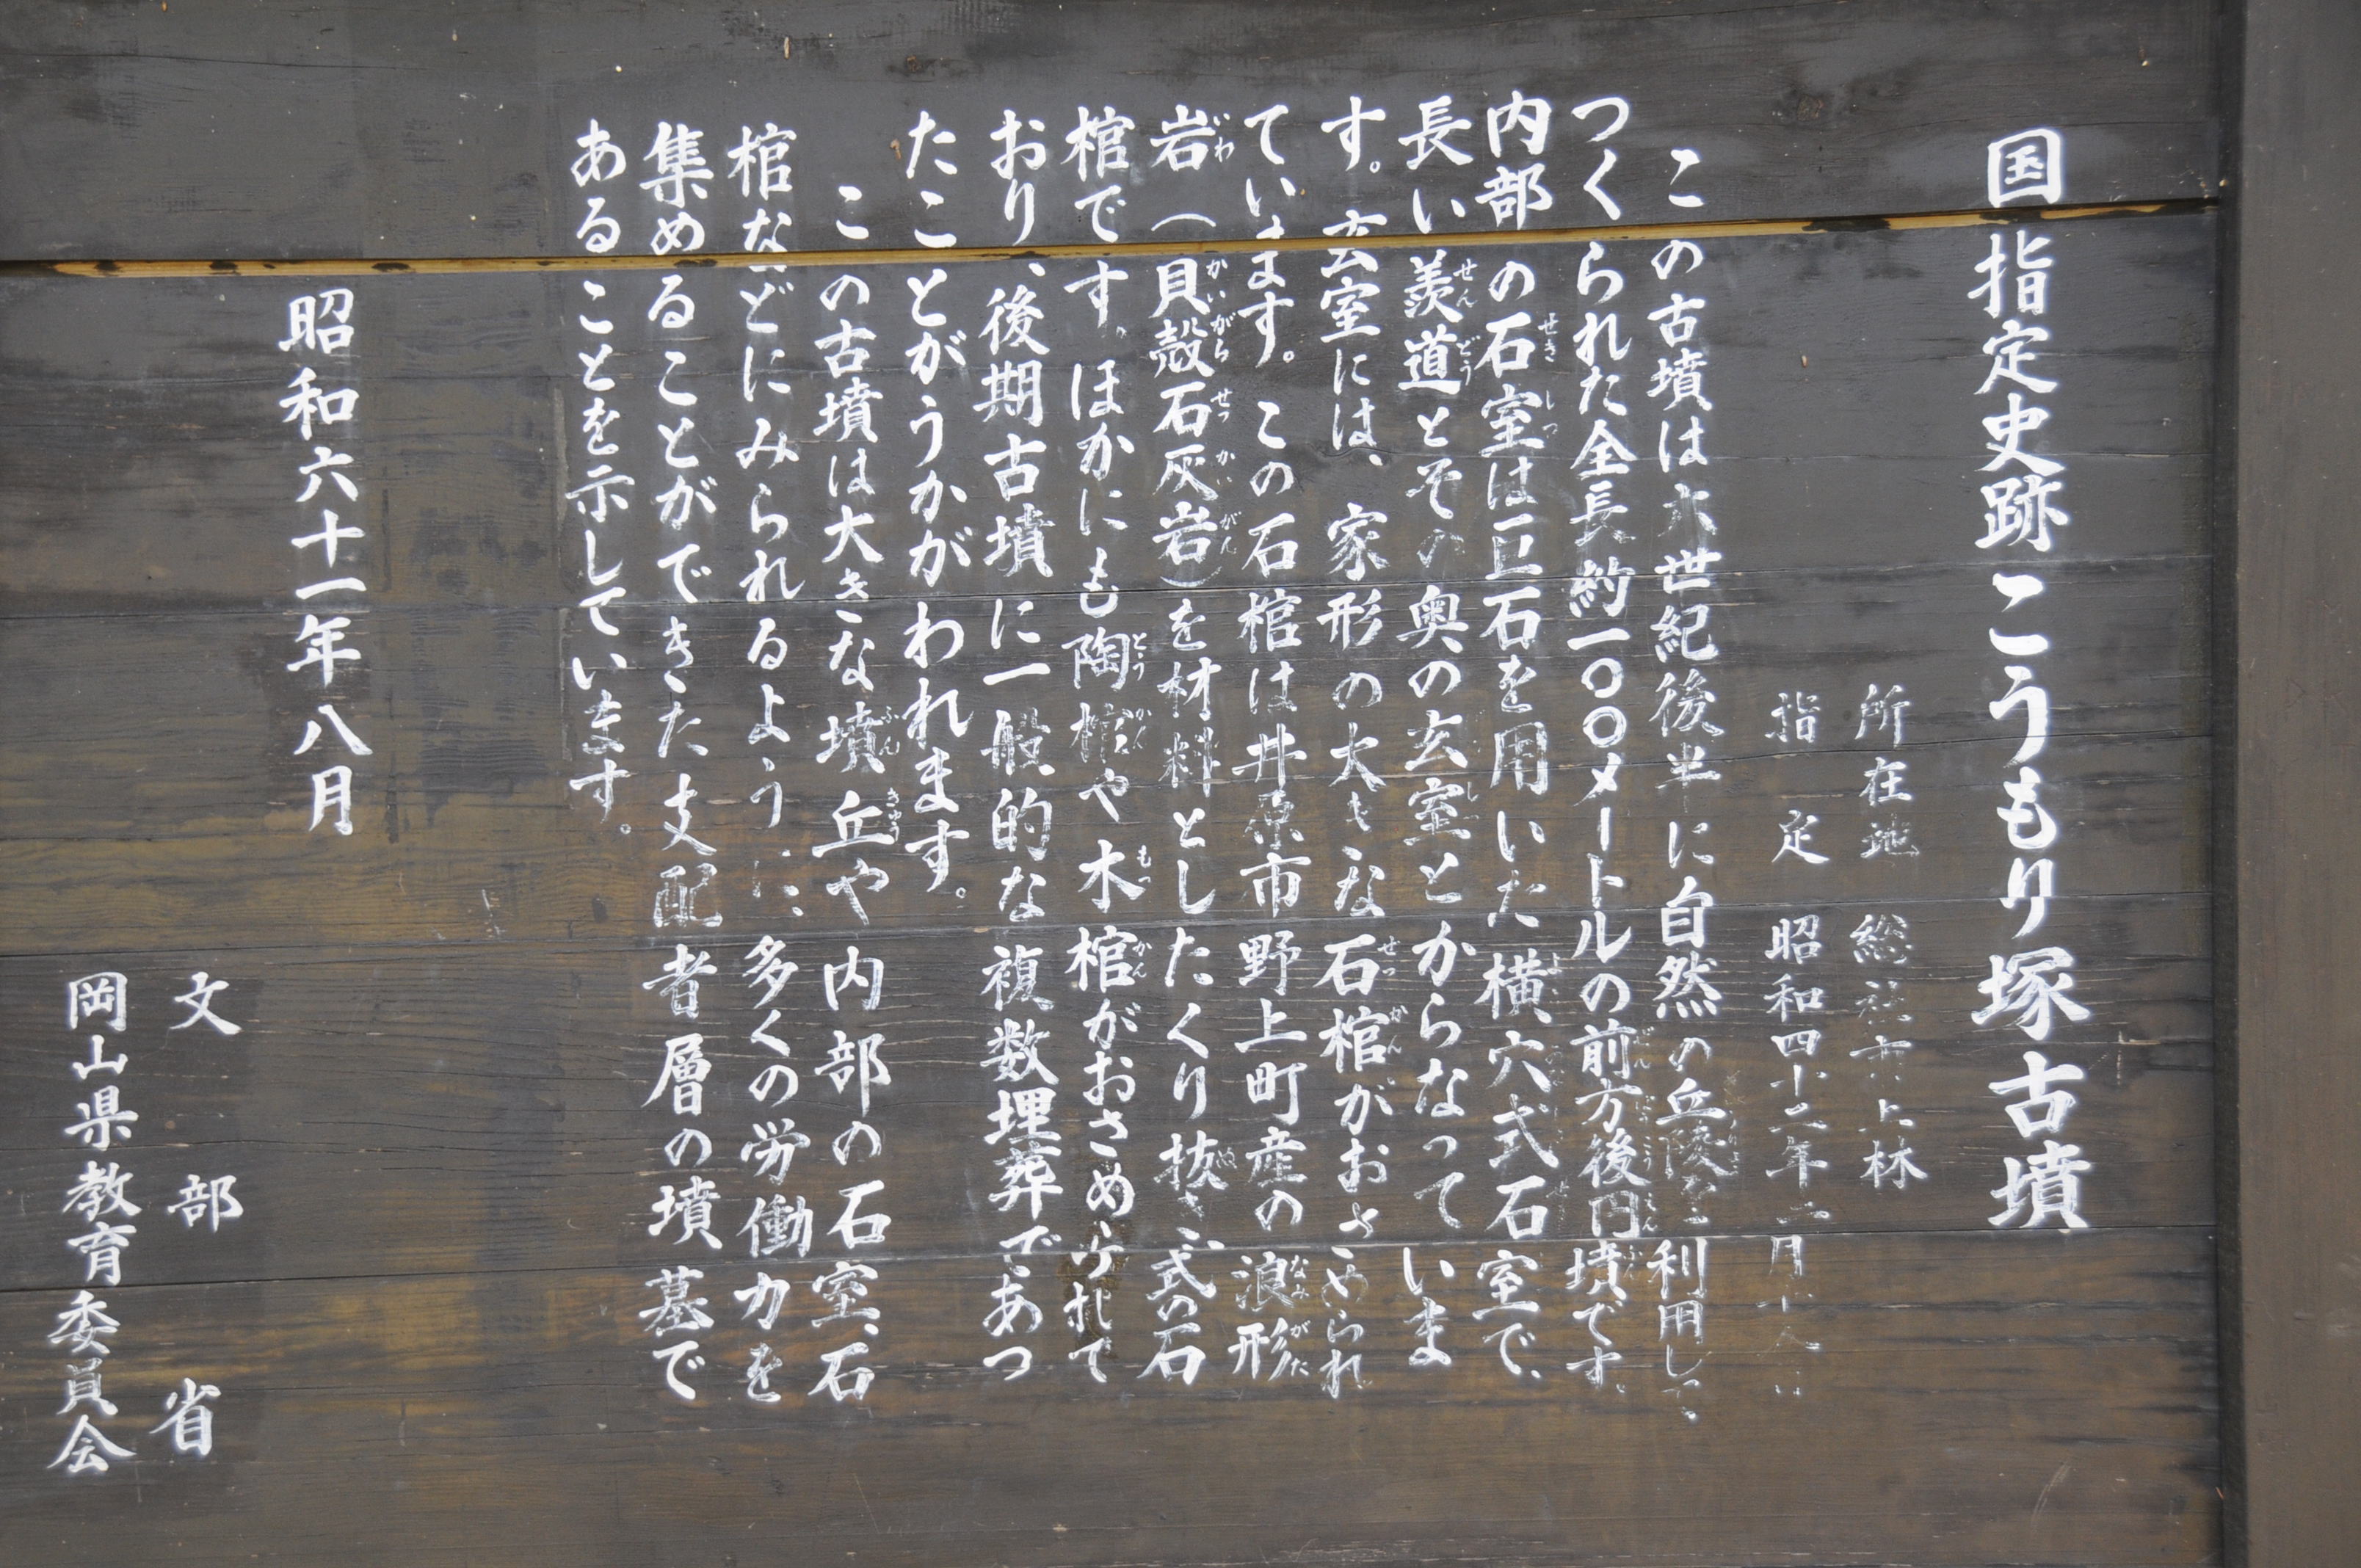 国指定史跡こうもり塚古墳
所在地 総社市上林
指定 昭和四十三年二月十八日
この古墳は六世紀後半に自然の丘陵を利用して
つくられた全長約一〇〇メートルの前方後円墳です。
内部の石室は巨石を用いた横穴式石室で、
長い羨道とその奥の玄室とからなっていま
す。玄室には、家形の大きな石棺がおさめられ
ています。この石棺は井原市野上町産の浪形
岩(貝殻石灰岩)を材料としたくり抜き式の石
棺です。ほかにも陶棺や木棺がおさめられて
おり、後期古墳に一般的な複数埋葬であっ
たことがうかがわれます。
この古墳は大きな墳丘や内部の石室、石
棺などにみられるように、多くの労働力を
集めることができた支配者層の墳墓で
あることを示しています。
昭和六十一年八月
文部省
岡山県教育委員会